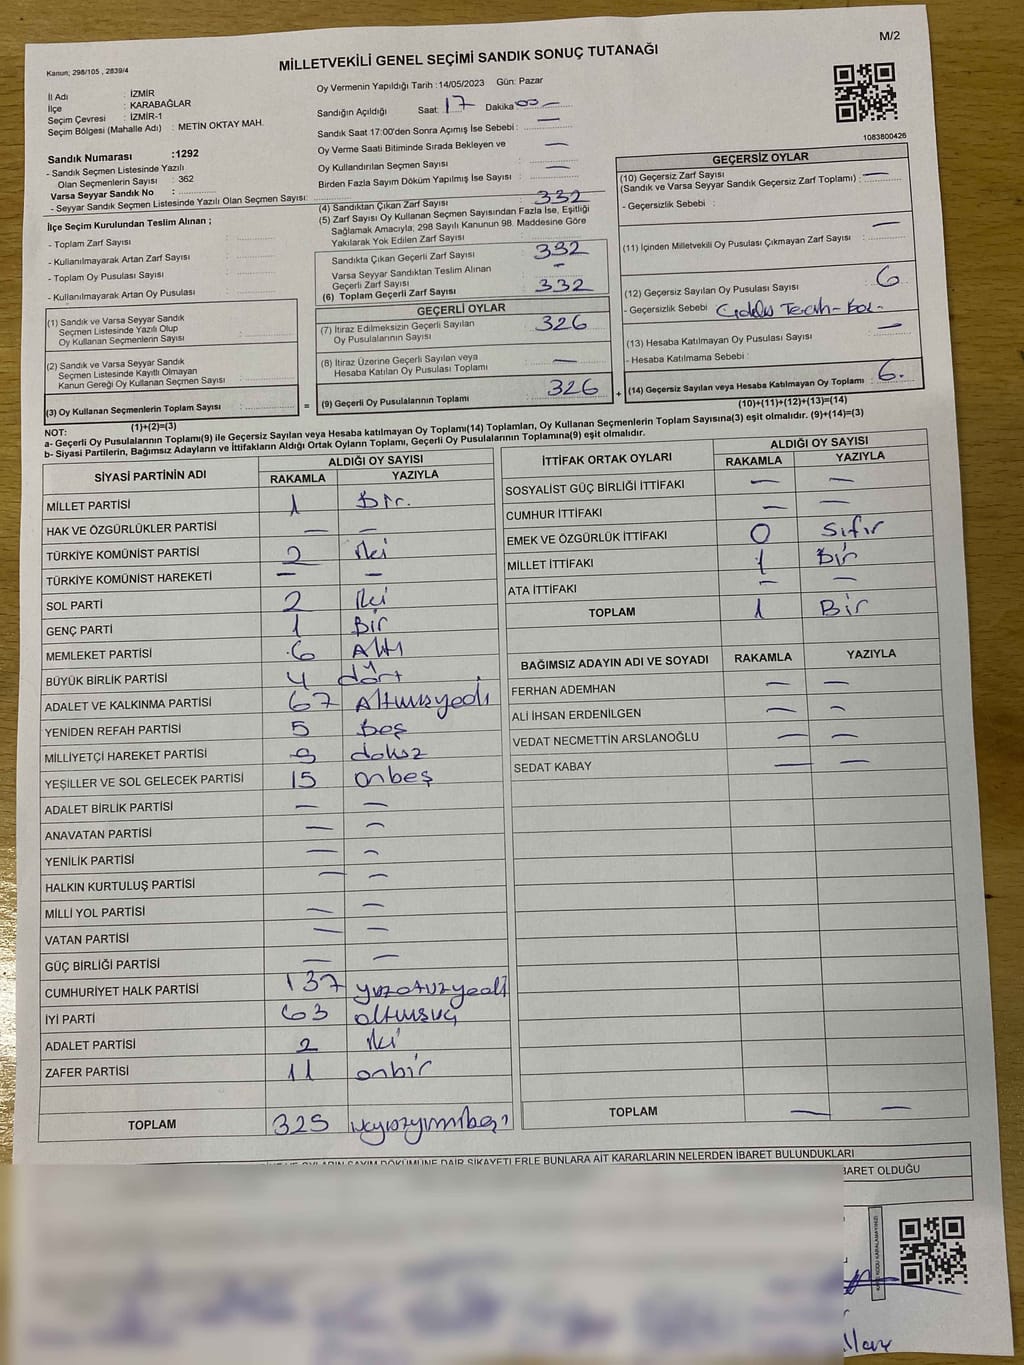 M/2
Kanun; 298/105 , 2839/4
MİLLETVEKİLİ GENEL SEÇİMİ SANDIK SONUÇ TUTANAĞI
İl Adı : İZMİR
İlçe : KARABAĞLAR
Seçim Çevresi : İZMİR-1
Seçim Bölgesi (Mahalle Adı) : METİN OKTAY MAH.
Sandık Numarası :1292
- Sandık Seçmen Listesinde Yazılı
Olan Seçmenlerin Sayısı : 362
Varsa Seyyar Sandık No :
- Seyyar Sandık Seçmen Listesinde Yazılı Olan Seçmen Sayısı:
İlçe Seçim Kurulundan Teslim Alınan ;
- Toplam Zarf Sayısı :
- Kullanılmayarak Artan Zarf Sayısı :
- Toplam Oy Pusulası Sayısı :
- Kullanılmayarak Artan Oy Pusulası :
(1) Sandık ve Varsa Seyyar Sandık
Seçmen Listesinde Yazılı Olup
Oy Kullanan Seçmenlerin Sayısı :
(2) Sandık ve Varsa Seyyar Sandık
Seçmen Listesinde Kayıtlı Olmayan
Kanun Gereği Oy Kullanan Seçmen Sayısı :
(3) Oy Kullanan Seçmenlerin Toplam Sayısı :
(1)+(2)=(3)
Oy Vermenin Yapıldığı Tarih :14/05/2023 Gün: Pazar
Sandığın Açıldığı Saat: 17 Dakika: 00 —
Sandık Saat 17:00'den Sonra Açımış İse Sebebi : —
Oy Verme Saati Bitiminde Sırada Bekleyen ve
Oy Kullandırılan Seçmen Sayısı : —
Birden Fazla Sayım Döküm Yapılmış İse Sayısı : —
(4) Sandıktan Çıkan Zarf Sayısı : 332
(5) Zarf Sayısı Oy Kullanan Seçmen Sayısından Fazla İse, Eşitliği
Sağlamak Amacıyla; 298 Sayılı Kanunun 98. Maddesine Göre
Yakılarak Yok Edilen Zarf Sayısı :
Sandıkta Çıkan Geçerli Zarf Sayısı : 332
Varsa Seyyar Sandıktan Teslim Alınan
Geçerli Zarf Sayısı : —
(6) Toplam Geçerli Zarf Sayısı : 332
GEÇERLİ OYLAR
(7) İtiraz Edilmeksizin Geçerli Sayılan
Oy Pusulalarının Sayısı : 326
(8) İtiraz Üzerine Geçerli Sayılan veya
Hesaba Katılan Oy Pusulası Toplamı : —
= (9) Geçerli Oy Pusulalarının Toplamı : 326 +
1083800426
GEÇERSİZ OYLAR
(10) Geçersiz Zarf Sayısı
(Sandık ve Varsa Seyyar Sandık Geçersiz Zarf Toplamı) : —
- Geçersizlik Sebebi :
(11) İçinden Milletvekili Oy Pusulası Çıkmayan Zarf Sayısı : —
(12) Geçersiz Sayılan Oy Pusulası Sayısı : 6
- Geçersizlik Sebebi :
(13) Hesaba Katılmayan Oy Pusulası Sayısı : —
- Hesaba Katılmama Sebebi :
(14) Geçersiz Sayılan veya Hesaba Katılmayan Oy Toplamı : 6.
(10)+(11)+(12)+(13)=(14)
NOT:
a- Geçerli Oy Pusulalarının Toplamı(9) ile Geçersiz Sayılan veya Hesaba katılmayan Oy Toplamı(14) Toplamları, Oy Kullanan Seçmenlerin Toplam Sayısına(3) eşit olmalıdır. (9)+(14)=(3)
b- Siyasi Partilerin, Bağımsız Adayların ve İttifakların Aldığı Ortak Oyların Toplamı, Geçerli Oy Pusulalarının Toplamına(9) eşit olmalıdır.
SİYASİ PARTİNİN ADI ALDIĞI OY SAYISI
RAKAMLA YAZIYLA
MİLLET PARTİSİ 1 Bir.
HAK VE ÖZGÜRLÜKLER PARTİSİ — —
TÜRKİYE KOMÜNİST PARTİSİ 2 iki
TÜRKİYE KOMÜNİST HAREKETİ — —
SOL PARTİ 2 iki
GENÇ PARTİ 1 Bir
MEMLEKET PARTİSİ 6 Altı
BÜYÜK BİRLİK PARTİSİ 4 dört
ADALET VE KALKINMA PARTİSİ 67 Altmışyedi
YENİDEN REFAH PARTİSİ 5 beş
MİLLİYETÇİ HAREKET PARTİSİ 9 dokuz
YEŞİLLER VE SOL GELECEK PARTİSİ 15 onbeş
ADALET BİRLİK PARTİSİ — —
ANAVATAN PARTİSİ — —
YENİLİK PARTİSİ — —
HALKIN KURTULUŞ PARTİSİ — —
MİLLİ YOL PARTİSİ — —
VATAN PARTİSİ — —
GÜÇ BİRLİĞİ PARTİSİ — —
CUMHURİYET HALK PARTİSİ 137 yüzotuzyedi
İYİ PARTİ 63 altmışüç
ADALET PARTİSİ 2 iki
ZAFER PARTİSİ 11 onbir
TOPLAM 325 üçyüzyirmibeş
İTTİFAK ORTAK OYLARI ALDIĞI OY SAYISI
RAKAMLA YAZIYLA
SOSYALİST GÜÇ BİRLİĞİ İTTİFAKI — —
CUMHUR İTTİFAKI — —
EMEK VE ÖZGÜRLÜK İTTİFAKI 0 sıfır
MİLLET İTTİFAKI 1 Bir
ATA İTTİFAKI — —
TOPLAM 1 Bir
BAĞIMSIZ ADAYIN ADI VE SOYADI RAKAMLA YAZIYLA
FERHAN ADEMHAN — —
ALİ İHSAN ERDENİLGEN — —
VEDAT NECMETTİN ARSLANOĞLU — —
SEDAT KABAY — —
TOPLAM — —
OYLARIN SAYIM DÖKÜMÜNE DAİR ŞİKAYETLERLE BUNLARA AİT KARARLARIN NELERDEN İBARET BULUNDUKLARI
İBARET OLDUĞU